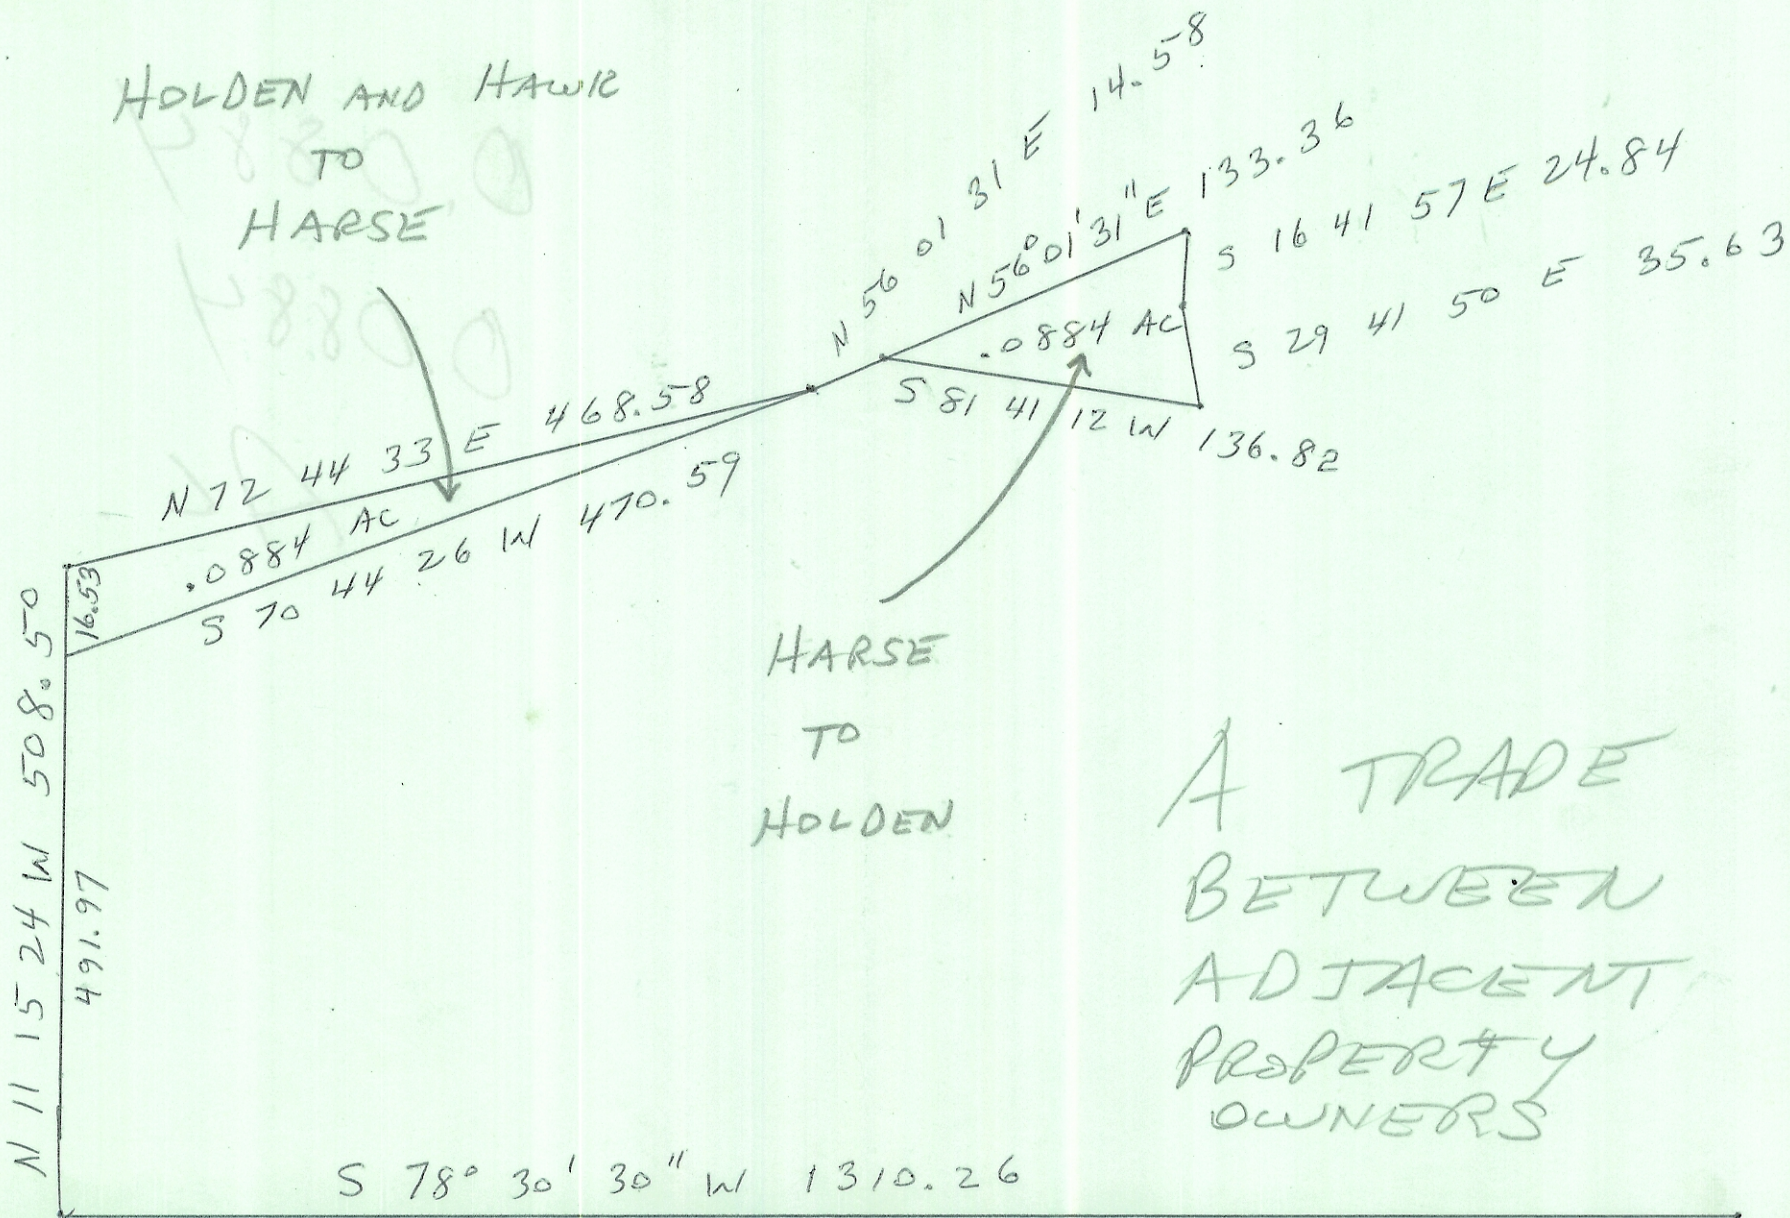 HOLDEN AND HAWK
TO
HARSE
N 56 01 31 E 14.58
N 56° 01' 31" E 133.36
S 16 41 57 E 24.84
S 29 41 50 E 35.63
.0884 AC
S 81 41 12 W 136.82
N 72 44 33 E 468.58
.0884 AC
S 70 44 26 W 470.59
16.53
N 11 15 24 W 508.50
491.97
HARSE
TO
HOLDEN
A TRADE
BETWEEN
ADJACENT
PROPERTY
OWNERS
S 78° 30' 30" W 1310.26
0.0884
0.0884